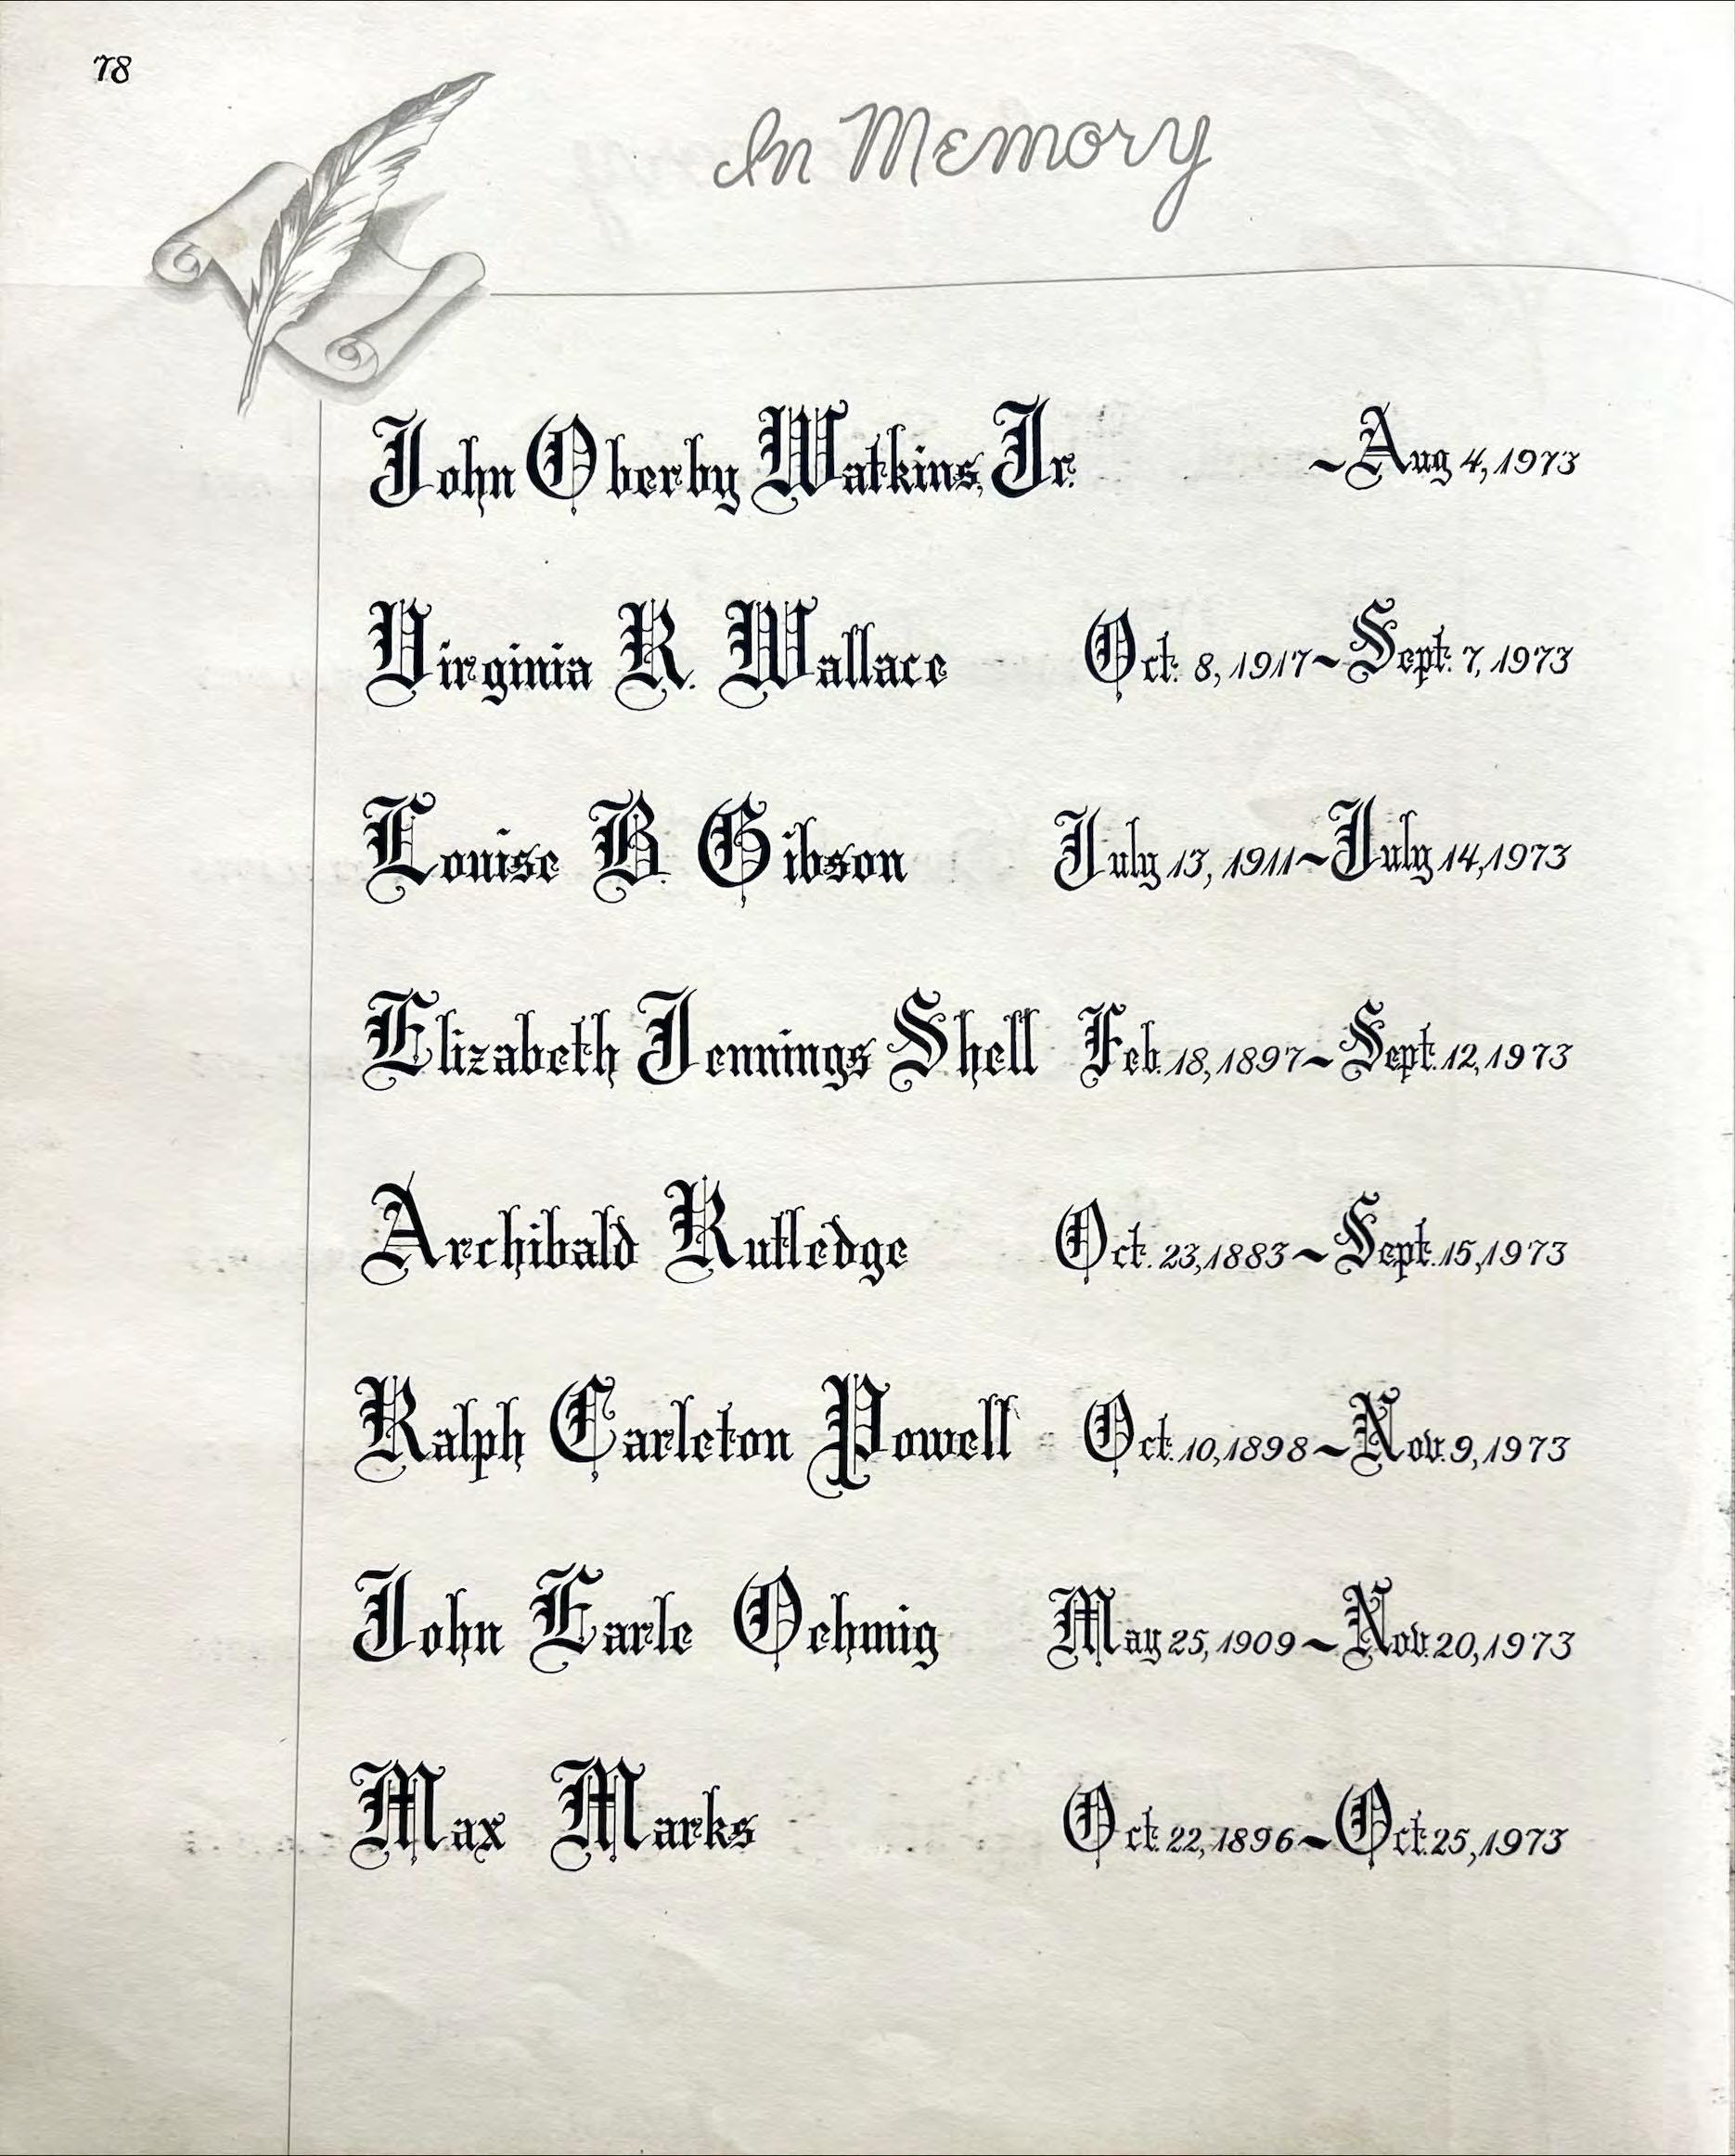 78
In Memory
John Oberby Watkins, Jr. ~Aug 4, 1973
Virginia R. Wallace Oct. 8, 1917~Sept. 7, 1973
Louise B. Gibson July 13, 1911~July 14, 1973
Elizabeth Jennings Shell Feb. 18, 1897~Sept. 12, 1973
Archibald Rutledge Oct. 23, 1883~Sept. 15, 1973
Ralph Carleton Powell Oct. 10, 1898~Nov. 9, 1973
John Earle Oehmig May 25, 1909~Nov. 20, 1973
Max Marks Oct. 22, 1896~Oct. 25, 1973